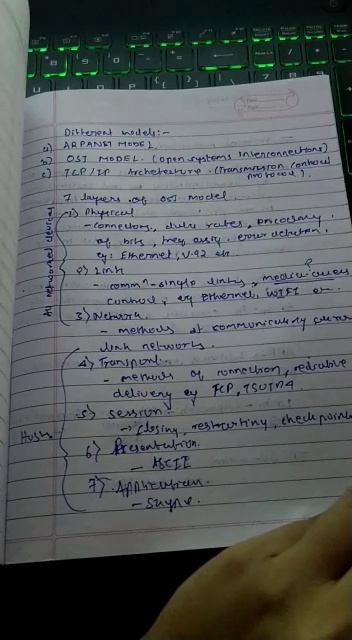 Different models:-
a) ARPANET MODEL.
b) OSI MODEL. (open systems interconnections)
c) TCP/IP Architecture. (Transmission control protocol).
7 layers of OSI model
All networked devices
1) Physical
- connectors, data rates,
of bits, error detection.
eg: Ethernet, V.92 etc.
2) Link
- comm^n - single links,
control, eg Ethernet, WIFI etc.
3) Network
- methods of communicating across
link networks.
Hosts
4) Transport.
- methods of connection, reliable
delivery eg TCP,
5) Session.
→ closing, restarting, checkpoint
6) Presentation.
- ASCII
7) Application.
- Skype.